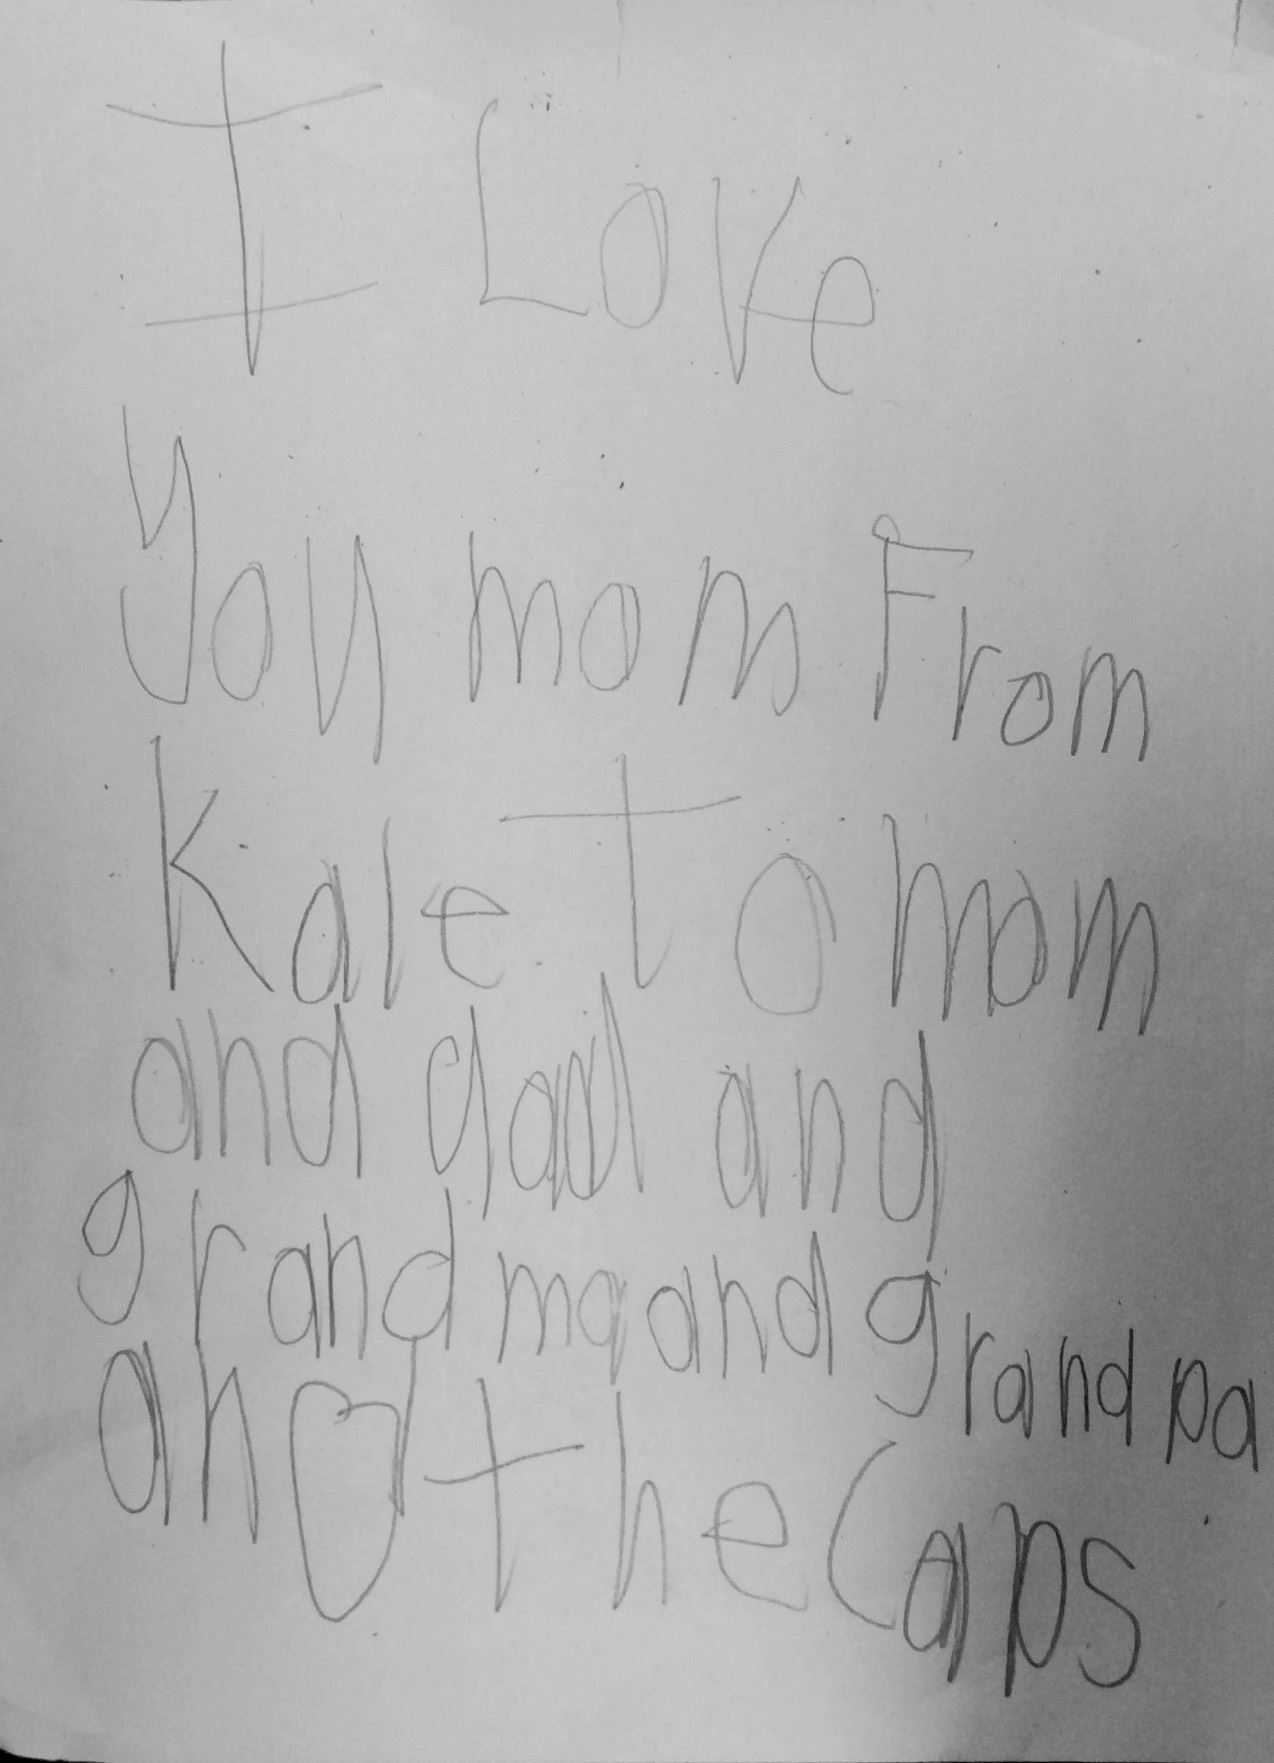 I Love
you mom From
Kale to mom
and dad and
grandma and grandpa
and the Caps